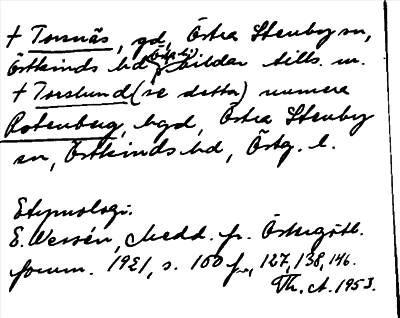 † Torsnäs, gd, Östra Stenby sn,
Östkinds hd (Ög. l.). bildar tills. m.
† Torslund (se detta) numera
Rotenberg, hgd, Östra Stenby
sn, Östkinds hd, Östg. l.
Etymologi.
E. Wessén, Medd. fr. Östergötl.
fornm. 1921, s. 100 f., 127, 138, 146.
Th. A. 1953.